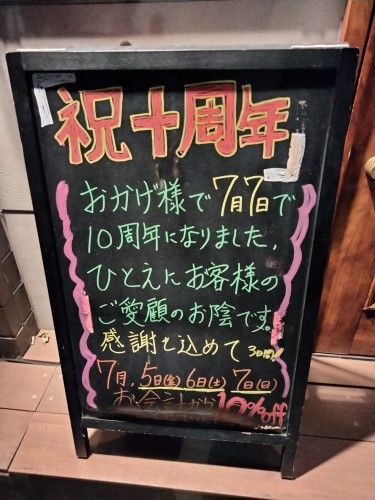 祝十周年
おかげ様で7月7日で
10周年になりました.
ひとえにお客様の
ご愛顧のお陰です。
感謝も込めて 3日間!!
7月, 5日(金) 6日(土) 7日(日)
お会計から 10%off